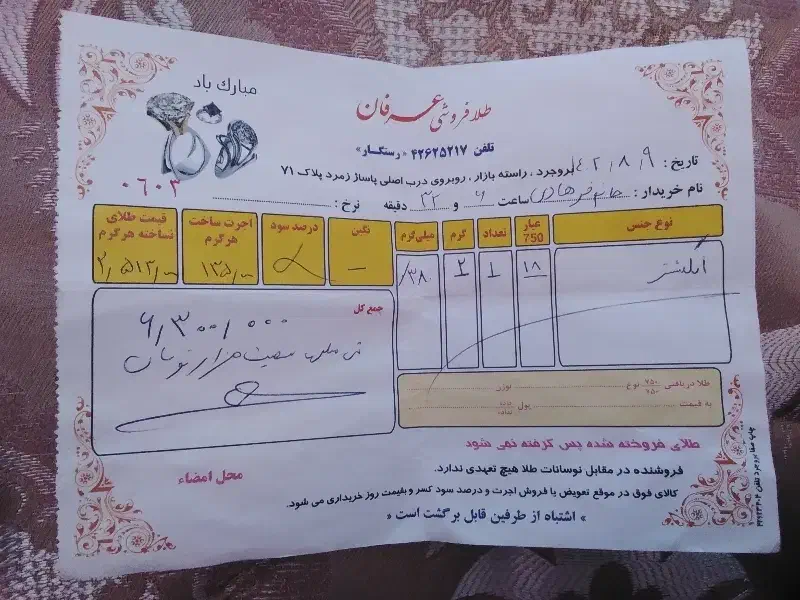 مبارک باد
طلافروشی عرفان
تلفن ۴۲۶۲۵۲۱۷ «رستگار»
تاریخ: ۱۴۰۲/۸/۹
بروجرد، راسته بازار، روبروی درب اصلی پاساژ زمرد پلاک ۷۱
۰۶۰۲
نام خریدار: خانم فرهادی ساعت ۷ و ۳۲ دقیقه نرخ:
نوع جنس عیار 750 تعداد گرم میلی‌گرم نگین درصد سود اجرت ساخت هرگرم قیمت طلای ساخته هرگرم
۱۸ ۱ ۲ /۳۸۰ – ۱۳۵/۰۰ ۲/۵۱۳/۰۰
جمع کل
۶/۳۰۰/۰۰۰
هزار تومان
طلا دریافتی ۷۵۰ ۷۵۰ نوع وزن
به قیمت پول
طلای فروخته شده پس گرفته نمی شود
فروشنده در مقابل نوسانات طلا هیچ تعهدی ندارد.
کالای فوق در موقع تعویض یا فروش اجرت و درصد سود کسر و بقیمت روز خریداری می شود.
» اشتباه از طرفین قابل برگشت است «
محل امضاء